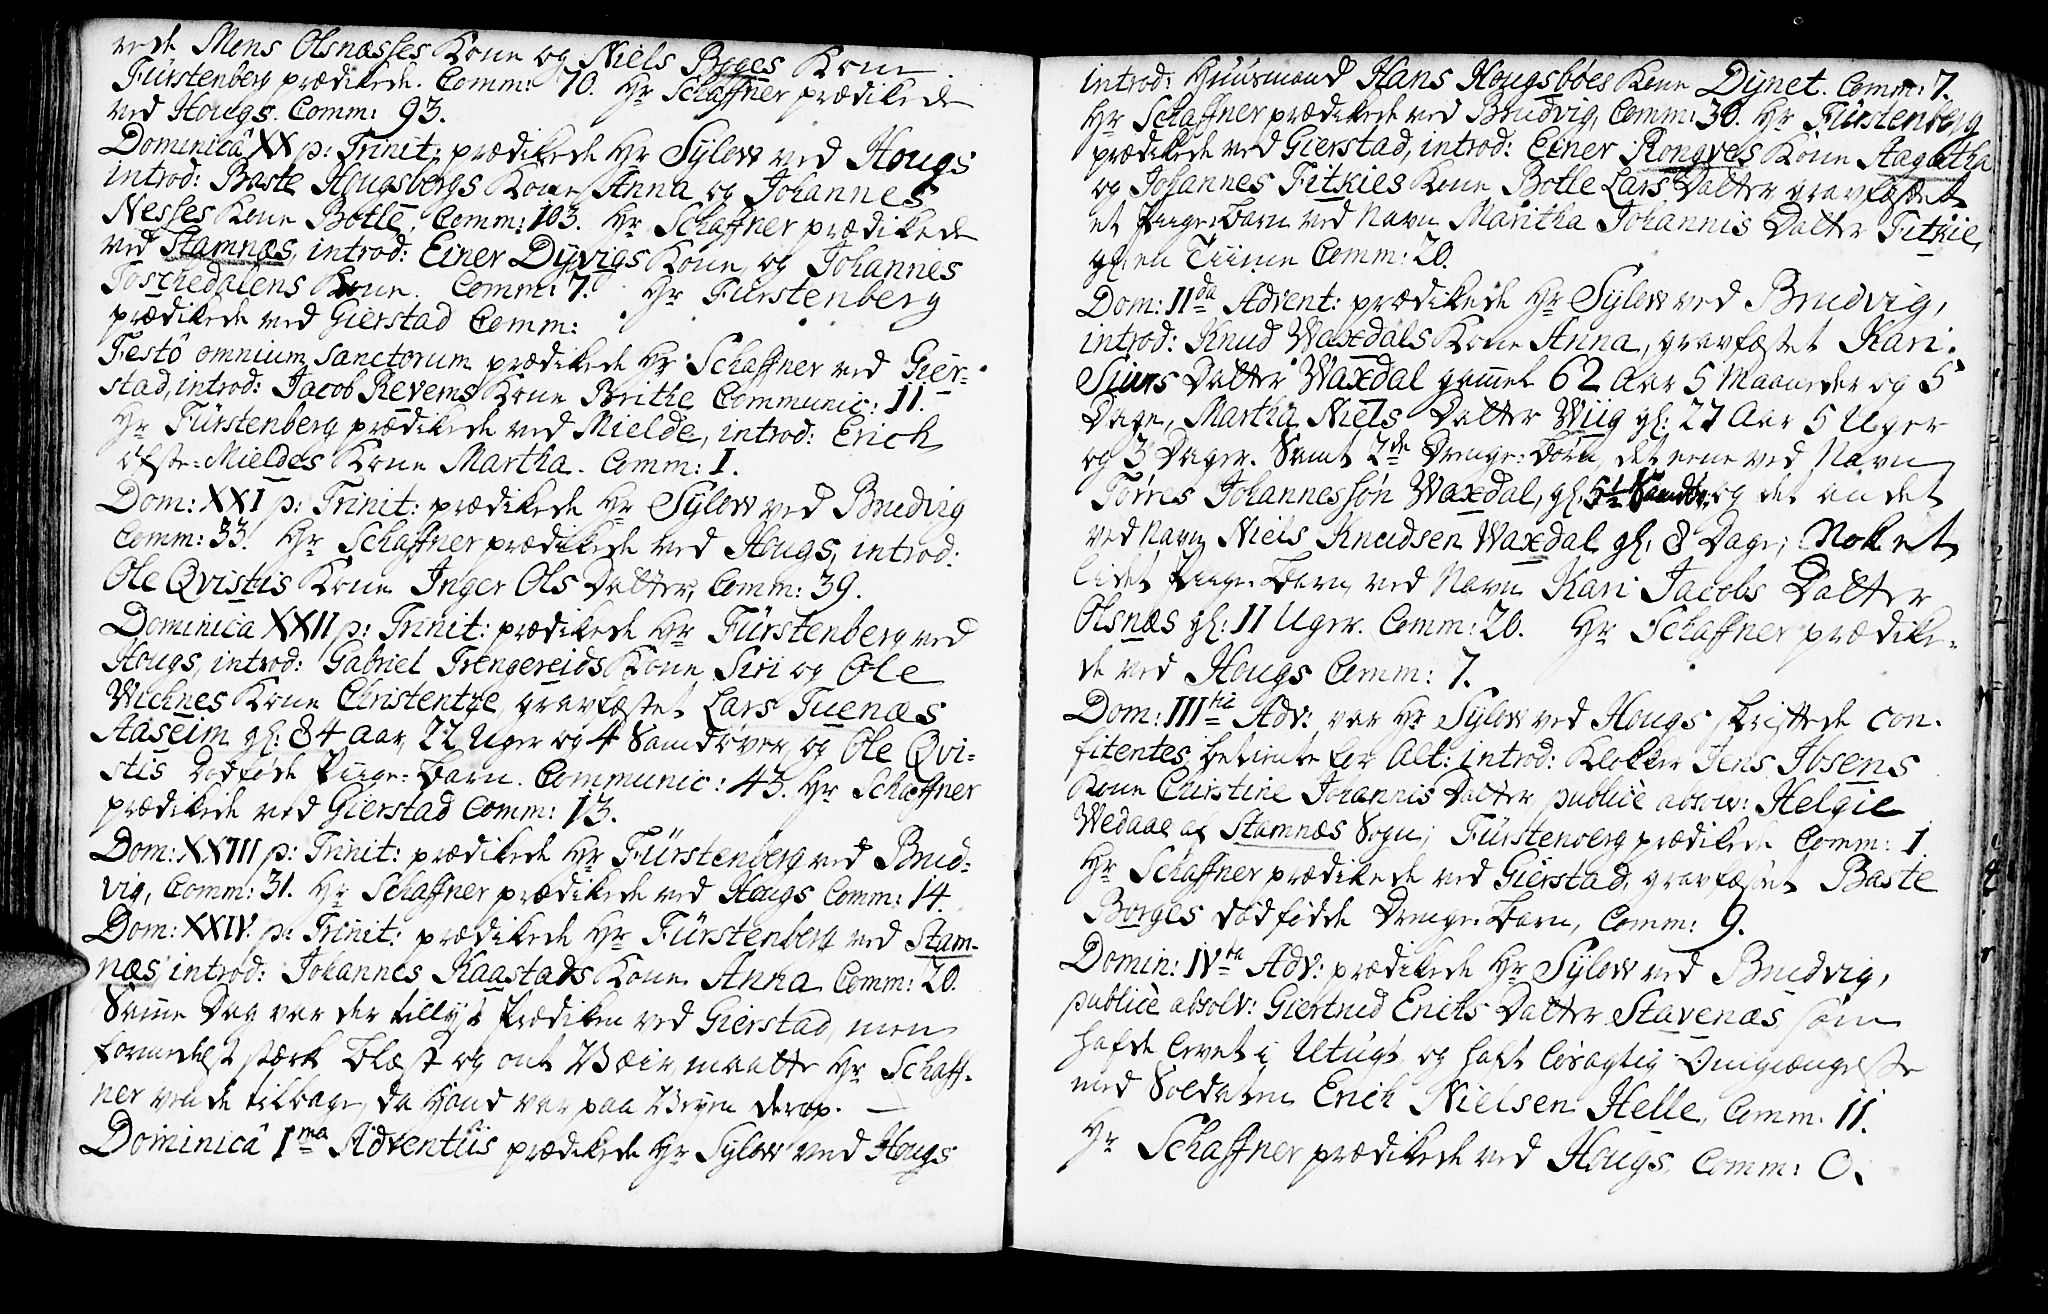 vede Mons Olsnæsses Kone og Niels Boges Kone
Fürstenberg prædikede. Comm: 70. Hr Schaffner prædikede
ved Hougs. Comm: 93.
Dominicâ XX p: Trinit: prædikede Hr Sylow ved Hougs
introd: Baste Hougsbergs Kone Anna og Johannes
Nesses Kone Botle, Comm: 103. Hr Schaffner prædikede
ved Stamnæs, introd: Einer Dyvigs Kone og Johannes
Toschedalens Kone. Comm: 7. Hr Fürstenberg
prædikede ved Gierstad Comm:
Festô omnium sanctorum prædikede Hr Schaffner ved Gier-
stad, introd: Jacob Revems Kone Brithe Communic: 11.
Hr Fürstenberg prædikede ved Mielde, introd: Erich
øfste-Mieldes Kone Martha. Comm: 1.
Dom: XXI p: Trinit: prædikede Hr Sylow ved Brudvig
Comm: 33. Hr Schaffner prædikede ved Hougs, introd:
Ole Qvistis Kone Inger Ols Datter, Comm: 39.
Dominica XXII p: Trinit: prædikede Hr Fürstenberg ved
Hougs, introd: Gabriel Trengereids Kone Siri og Ole
Wichnes Kone Christentze, gravfæstet Lars Tuenæs
Aaseim gl: 84 aar, 22 Uger og 4 Samdover, og Ole Qvi-
stis dødføde Piige-barn. Communic: 43. Hr Schaffner
prædikede ved Gierstad Comm: 13.
Dom: XXIII p: Trinit: prædikede Hr Fürstenberg ved Brud-
vig, Comm: 31. Hr Schaffner prædikede ved Hougs Comm: 14.
Dom: XXIV. p: Trinit: prædikede Hr Fürstenberg ved Stam-
næs, introd: Johannes Kaastads Kone Anna Comm: 20.
Samme Dag var der tillyst Prædiken ved Gierstad, men
formedelst stærk blæst og ont Væir, maatte Hr Schaff-
ner vende tilbage, da Hand var paa Veyen derop.
Dominicâ 1ma Adventûs prædikede Hr Sylow ved Hougs
introd: Huusmand Hans Hougsbøes Kone Dynet. Comm: 7.
Hr Schaffner prædikede ved Brudvig, Comm: 30. Hr Fürstenberg
prædikede ved Gierstad, introd: Einer Rongves Kone Aagatha
og Johannes Fitkies Kone Botle Lars Datter gravfæstet
et Piige-barn ved Navn Maritha Johannis Datter Fitkie,
gl: en Tiime Comm: 20.
Dom: IIda Advent: prædikede Hr Sylow ved Brudvig,
introd: Knud Waxdals Kone Anna, gravfæstet Kari
Siurs Datter Waxdal gammel 62 Aar 5 Maaneder og 5
Dage, Martha Niels Datter Wiig gl: 27 Aar 5 Uger
og 3 Dager. Samt 2de Drenge-børn, det eene ved Navn
Tørres Johannessøn Waxdal, gl: og det andet
ved Navn Niels Knudsen Waxdal gl: 8 Dage; Nok et
lidet Piige-barn ved Navn Kari Jacobs Datter
Olsnæs gl: 11 Uger. Comm: 20. Hr Schaffner prædike-
de ved Hougs Comm: 7.
Dom: IIItia Adv: var Hr Sylow ved Hougs skriftede con-
fitentes, betiente for Alt: introd: Klokker Jens Ibsens
Kone Christine Johannis Datter, publicè absolv: Helgie
Wedaae af Stamnæs Sogn; Fürstenberg prædikede Comm: 1
Hr Schaffner prædikede ved Gierstad, gravfæstet Baste
Borges dødfødde Drenge-barn, Comm: 9.
Domin: IVta Adv: prædikede Hr Sylow ved Brudvig,
publicè absolv: Giertrud Erichs Datter Stavenæs, som
hafde levet i Utugt og haft løsagtig Omgiængelse
med Soldaten Erich Nielsen Helle, Comm: 11.
Hr Schaffner prædikede ved Hougs. Comm: 0.